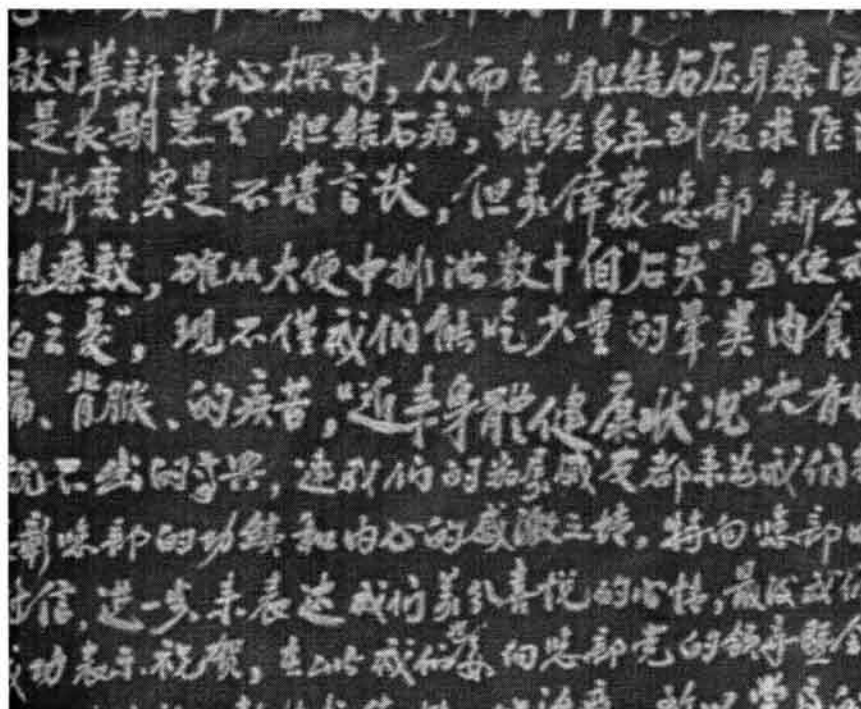 敢于革新精心探討，从而在“胆结石压耳療法
是长期患了“胆结石病”，雖经多年到處求医
的折磨，实是不堪言状，但我倖蒙您部“新压
見療效，確从大便中排出数十個“石头”，至使
”，现不僅我们能吃少量的葷类肉食
痛、背脹、的疾苦，“近来身體健康状况”大有
说不出的高兴，连我们的家属威友都来为我们
彰您部的功績和内心的感激之情，特向您部
信，进一步来表达我们万分喜悦的心情，最后我们
功表示祝賀，在此我们要向您部党的領导暨全